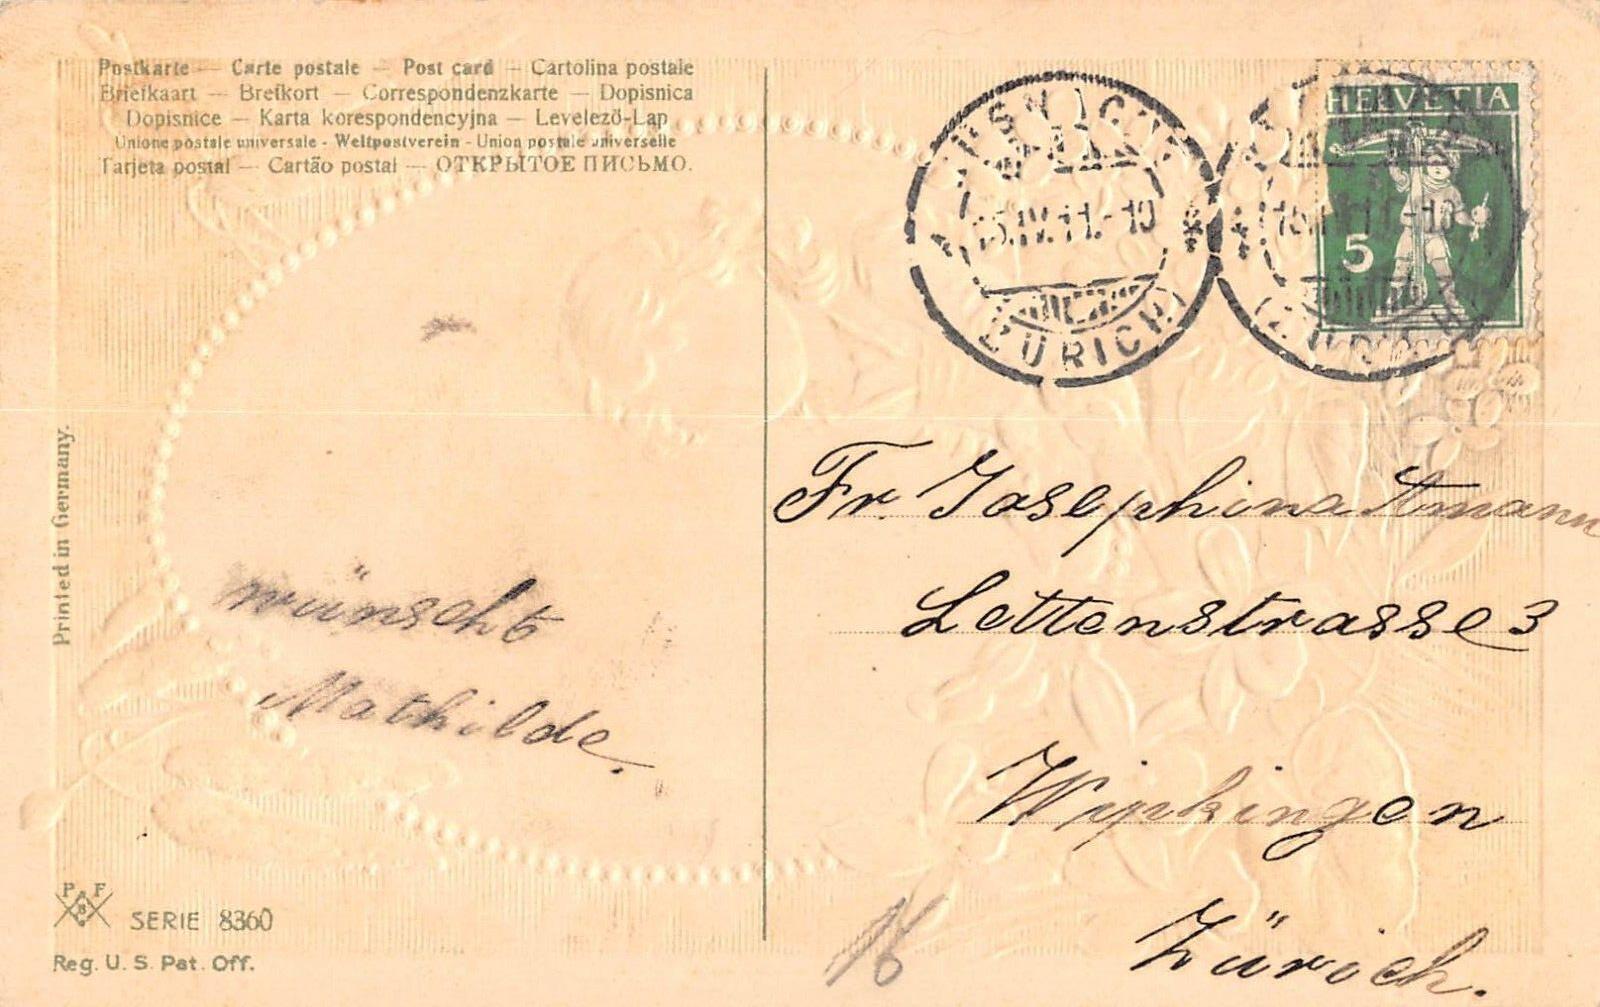 Postkarte — Carte postale — Post card — Cartolina postale
Briefkaart — Brefkort — Correspondenzkarte — Dopisnica
Dopisnice — Karta korespondencyjna — Levelező-Lap
Unione postale universale - Weltpostverein - Union postale universelle
Tarjeta postal — Cartão postal — ОТКРЫТОЕ ПИСЬМО.
HELVETIA
5
15.IV.11.-10
ZÜRICH
Fr. Josephina Ammann
Lettenstrasse 3
Wipkingen
Zürich.
wünscht
Mathilde.
Printed in Germany.
P F
B
SERIE 8360
Reg. U. S. Pat. Off.
16